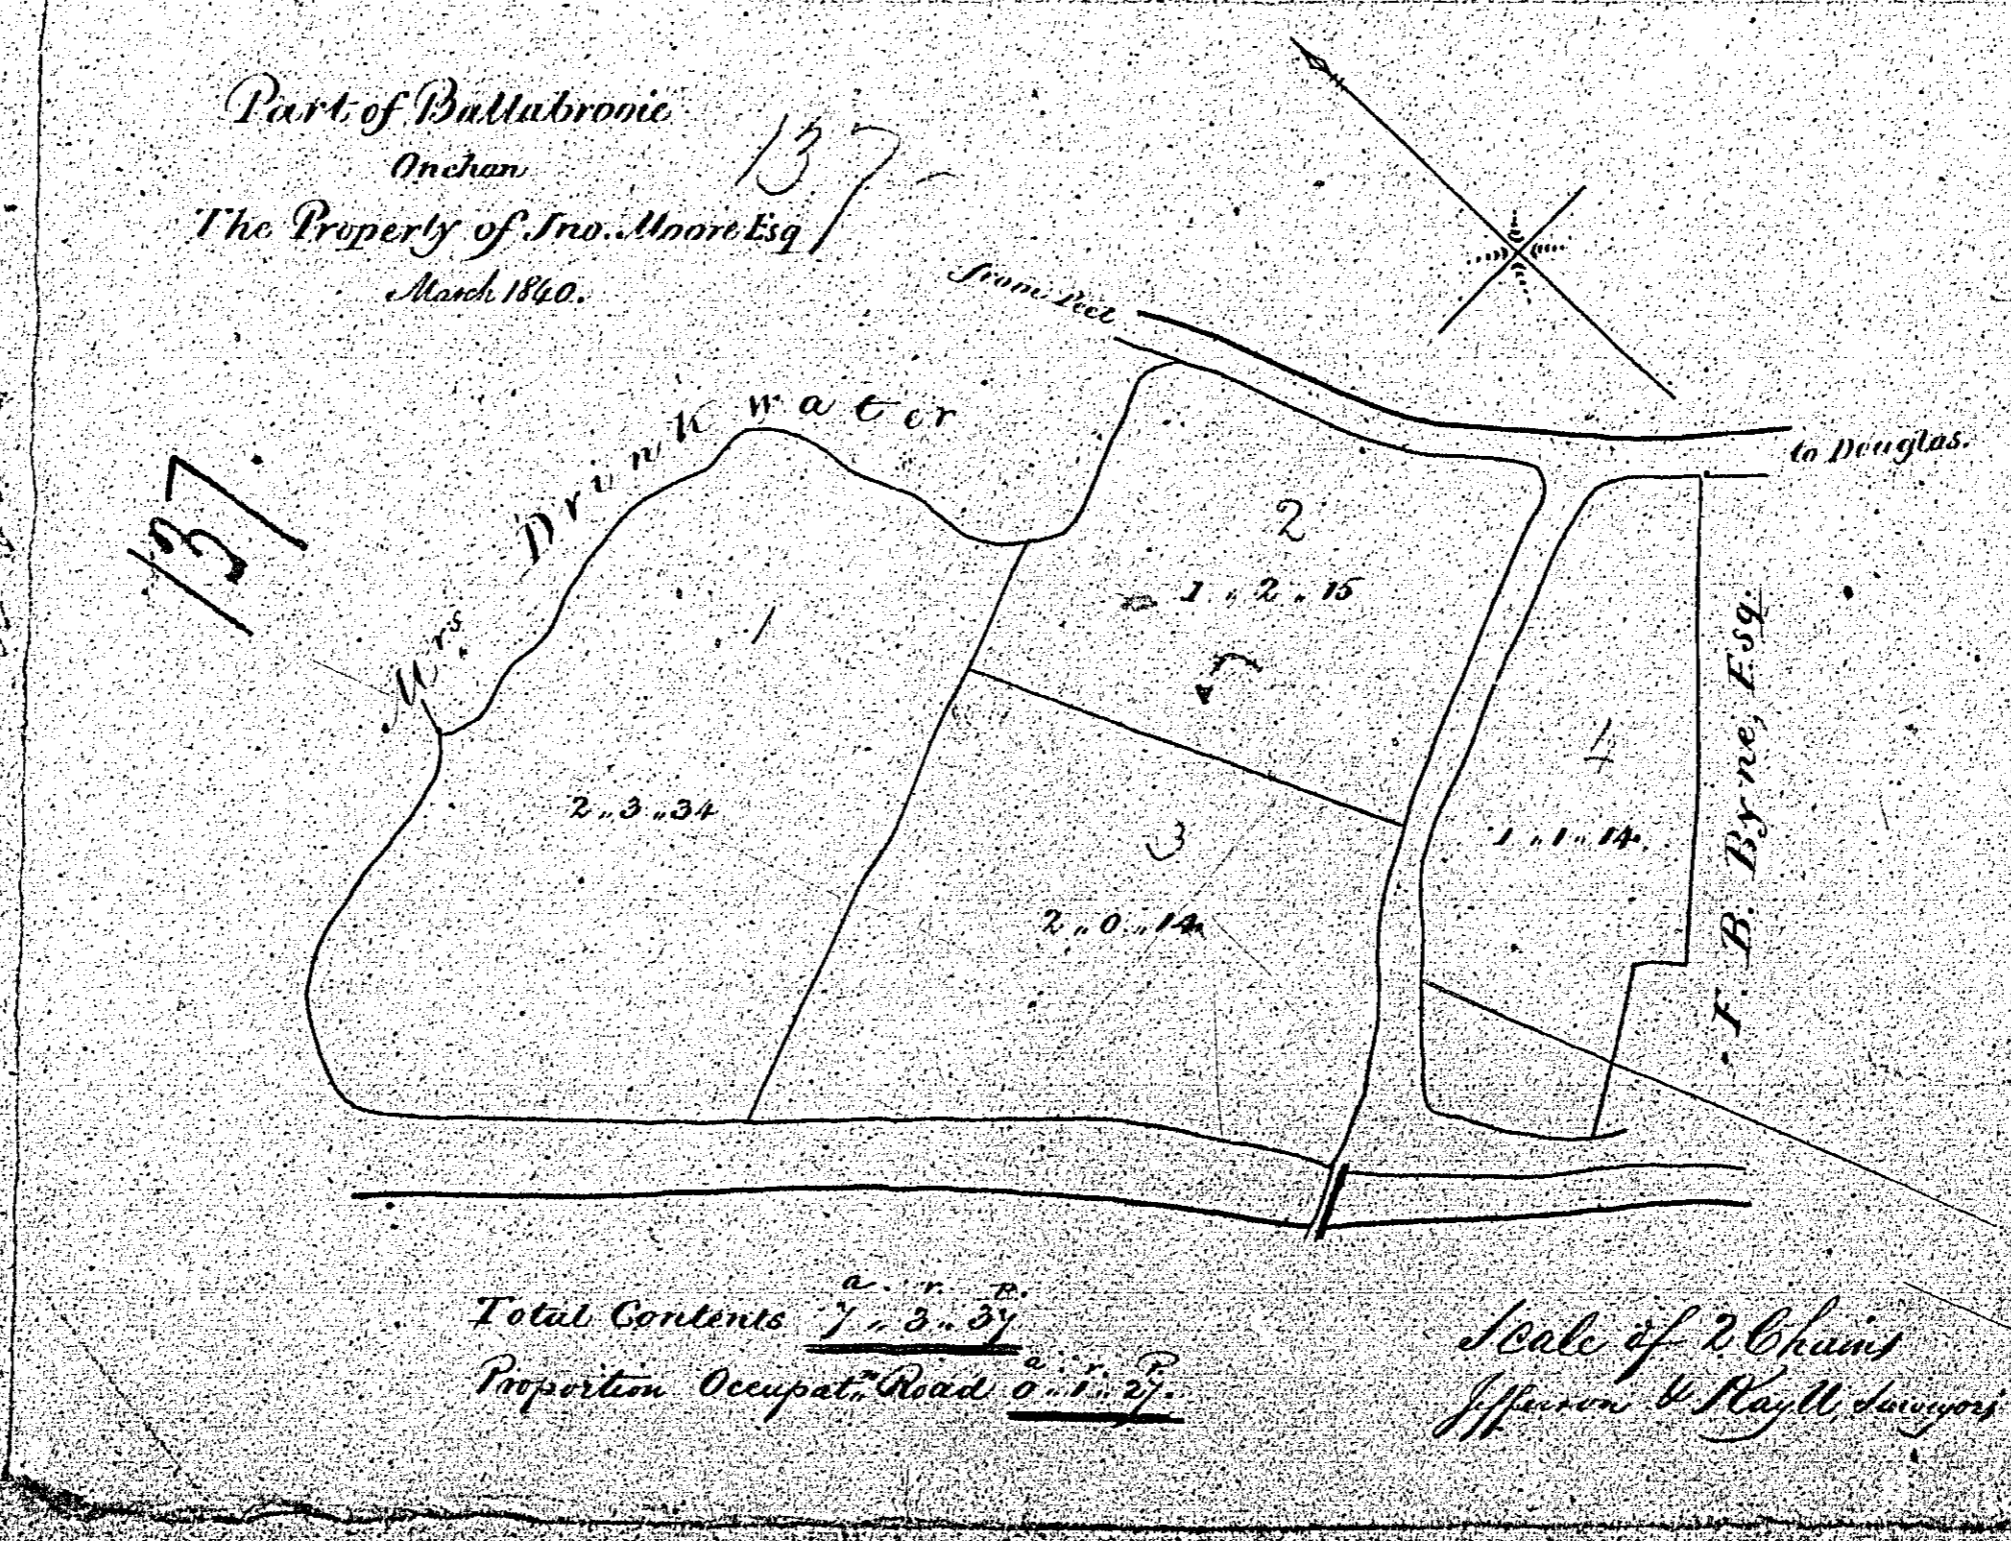 Part of Ballabrooie
Onchan
The Property of Jno. Moore Esq
March 1840.
137
137.
from Peel
to Douglas.
Mrs Drinkwater
1
2,,3,,34
2
1,,2,,15
3
2,,0,,14
4
1,,1,,14.
F. B. Byrne, Esq.
a. r. p.
Total Contents 7,,3,,37
a. r. P.
Proportion Occupatn. Road 0,,1,,27.
Scale of 2 Chains
Jefferson & Kayll, Surveyors